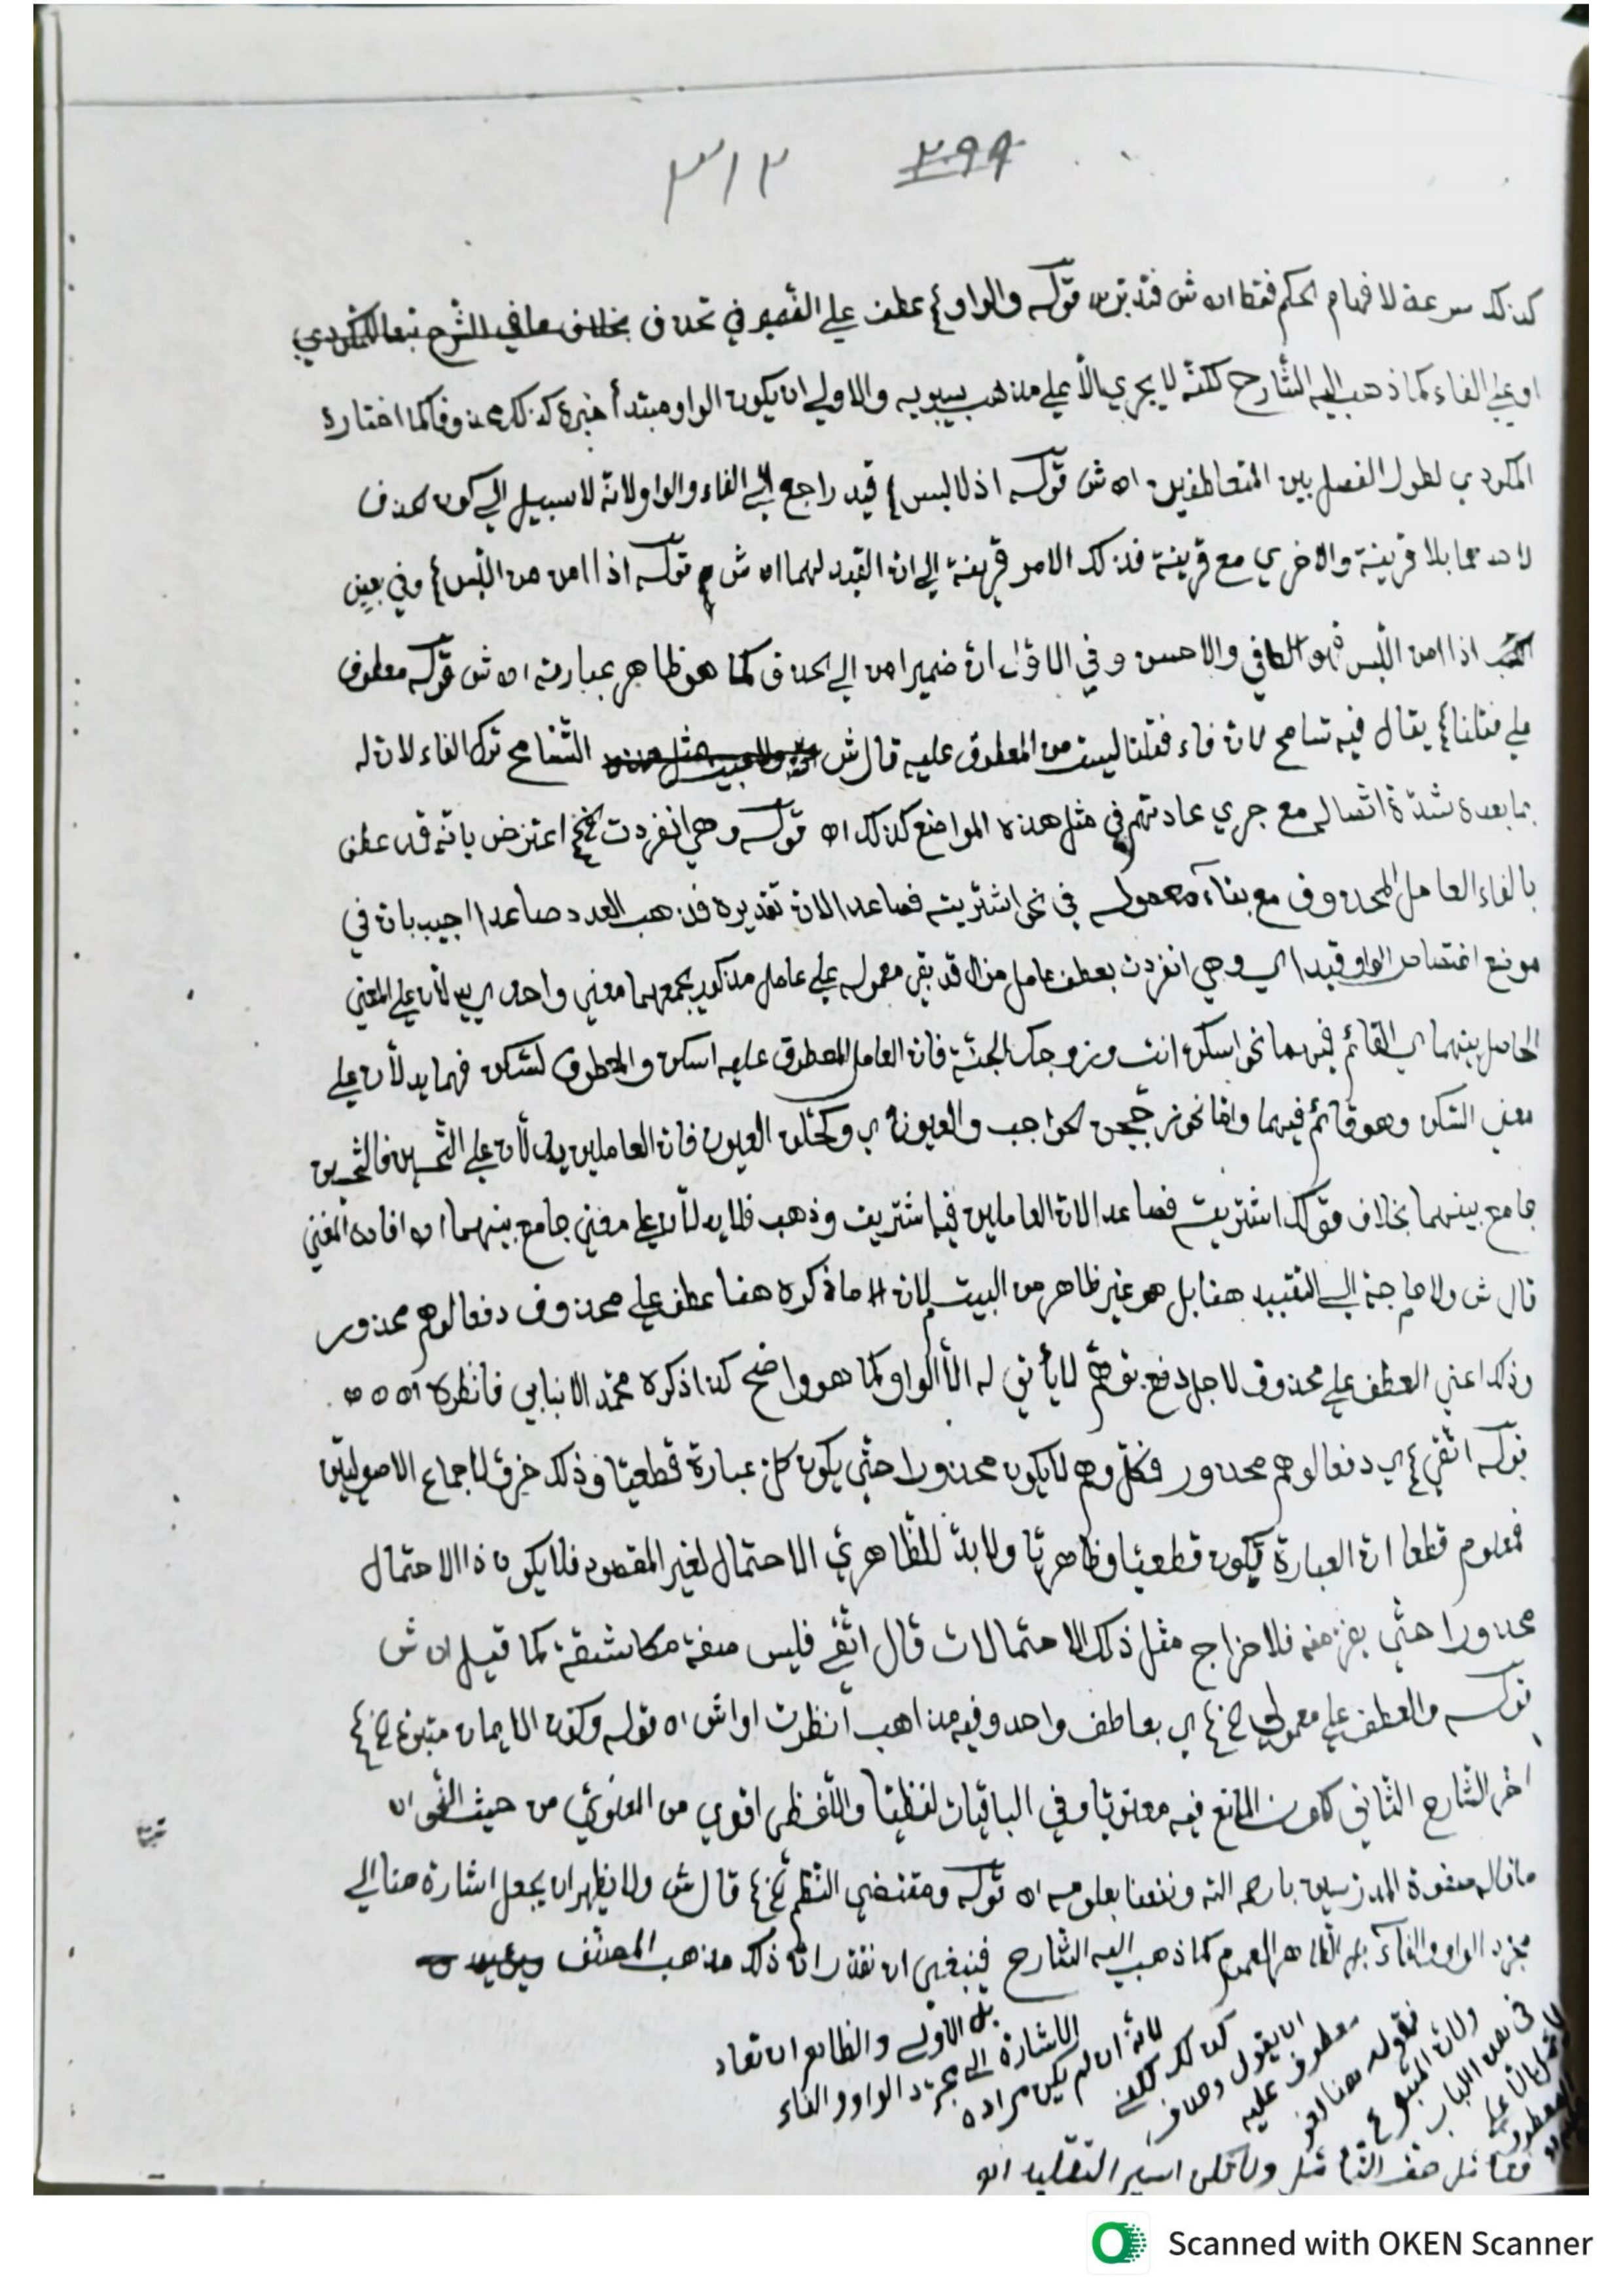 ٢٩٩ ٣١٢
كذلك سرعة لافهام الحكم فقط اه ش فتدبره قوله والواو } عطف على الضمير في تحذف بخلاف ما في الشرح تبعا للمكودي
او على الفاء كما ذهب اليه الشارح لكنه لا يجري الا على مذهب سيبويه والاولى ان يكون الواو مبتدأ خبره كذلك محذوفا كما اختاره
المكودي لطول الفصل بين المتعاطفين اه ش قوله اذ لا لبس } قيد راجع الى الفاء والواو لانه لا سبيل الى كون الحذف
لاحدهما بلا قرينة والاخرى مع قرينة فذلك الامر قرينة الى ان القيد لهما اه ش قوله اذا امن من اللبس } وفي بعض
اذا امن اللبس فهو الكافي والاحسن وفي الاول ان ضمير امن الى الحذف كما هو ظاهر عبارته اه ش قوله معطوف
على فقلنا } يقال فيه تسامح لان فاء فقلنا ليست من المعطوف عليه قال ش التسامح ترك الفاء لان له
بما بعده شدة اتصال مع جري عادتهم في مثل هذه المواضع كذلك اه قوله وهي انفردت الخ اعترض بانه قد عطف
بالفاء العامل المحذوف مع بقاء معموله في نحو اشتريته فصاعدا لان تقديره فذهب العدد صاعدا اجيب بان في
موضع اختصاص الواو قيدا اي وهي انفردت بعطف عامل مزال قد بقي معموله على عامل مذكور يجمعهما معنى واحد اي يدلان على المعنى
الحاصل بينهما اي القائم فيهما نحو اسكن انت وزوجك الجنة فان العامل المعطوف عليه اسكن والمعطوف ليسكن فهما يدلان على
معنى السكن وهو قائم فيهما واما نحو زججن الحواجب والعيونا اي وكحلن العيون فان العاملين يدلان على التحسين فالتحسين
جامع بينهما بخلاف قولك اشتريته فصاعدا لان العاملين فيه اشتريت وذهب فلا يدلان على معنى جامع بينهما اه افاده المغني
قال ش ولا حاجة الى التقييد هنا بل هو غير ظاهر من البيت لان ما ذكره هنا عطف على محذوف دفعا لوهم محذور
وذلك اعني العطف على محذوف لاجل دفع توهم لا يأتي له الا الواو كما هو واضح كذا ذكره محمد الانبابي فانظره اه
قوله اتقي } اي دفعا لوهم محذور فكل وهم لا يكون محذورا حتى يكون كل عبارة قطعيا وذلك خرق لاجماع الاصوليين
فمعلوم قطعا ان العبارة تكون قطعيا وظاهريا ولا بد للظاهري الاحتمال لغير المقصود فلا يكون ذا الاحتمال
محذورا حتى يفر منه فلاخراج مثل ذلك الاحتمالات قال اتقي فليس صفة مكاشفة كما قيل اه ش
قوله والعطف على معمولي الخ } اي بعاطف واحد وفيه مذاهب اه قوله وكون الايمان متبوء الخ }
اخر الشارح الثاني لكون المانع فيه معنويا وفي الباقيات لفظيا واللفظي اقوى من المعنوي من حيث النحو اه
ما قاله صفوة المدرسين يارحمه الله ونفعنا بعلومه اه قوله ومقتضى النظم الخ } قال ش ولا يظهر ان يجعل اشارة هنا الى
مجرد الواو والفاء بل الظاهر العموم كما ذهب اليه الشارح فينبغي ان نقدر ان ذلك مذهب المصنف
بل الاولى والظاهر ان تعاد
الاشارة الى مجرد الواو والفاء
لانه ان لم يكن مراده
كذلك لكفى
ان يقول وحذف
معطوف عليه
فقوله هنا لغو
ولان المتبوع
في هذا الباب
المعطوف
فتأمل حق التأمل ولا تكن اسير التقليد اه
Scanned with OKEN Scanner